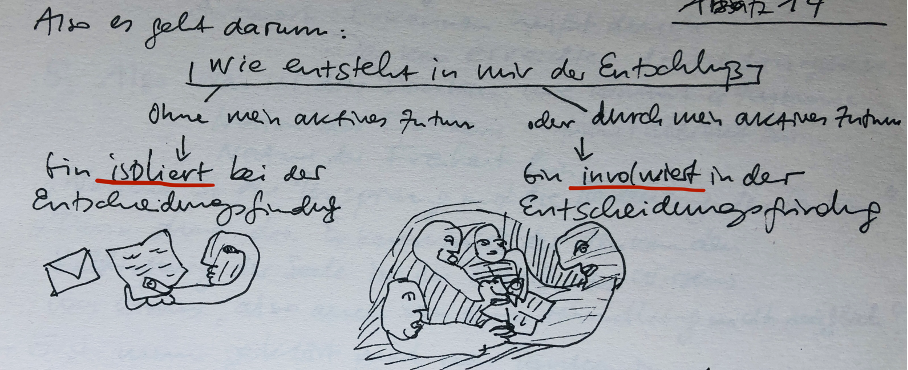 Absatz 14
Also es geht darum:
Wie entsteht in mir der Entschluß
Ohne mein aktives Zutun
oder durch mein aktives Zutun
Bin isoliert bei der
Entscheidungsfindung
Bin involviert in der
Entscheidungsfindung